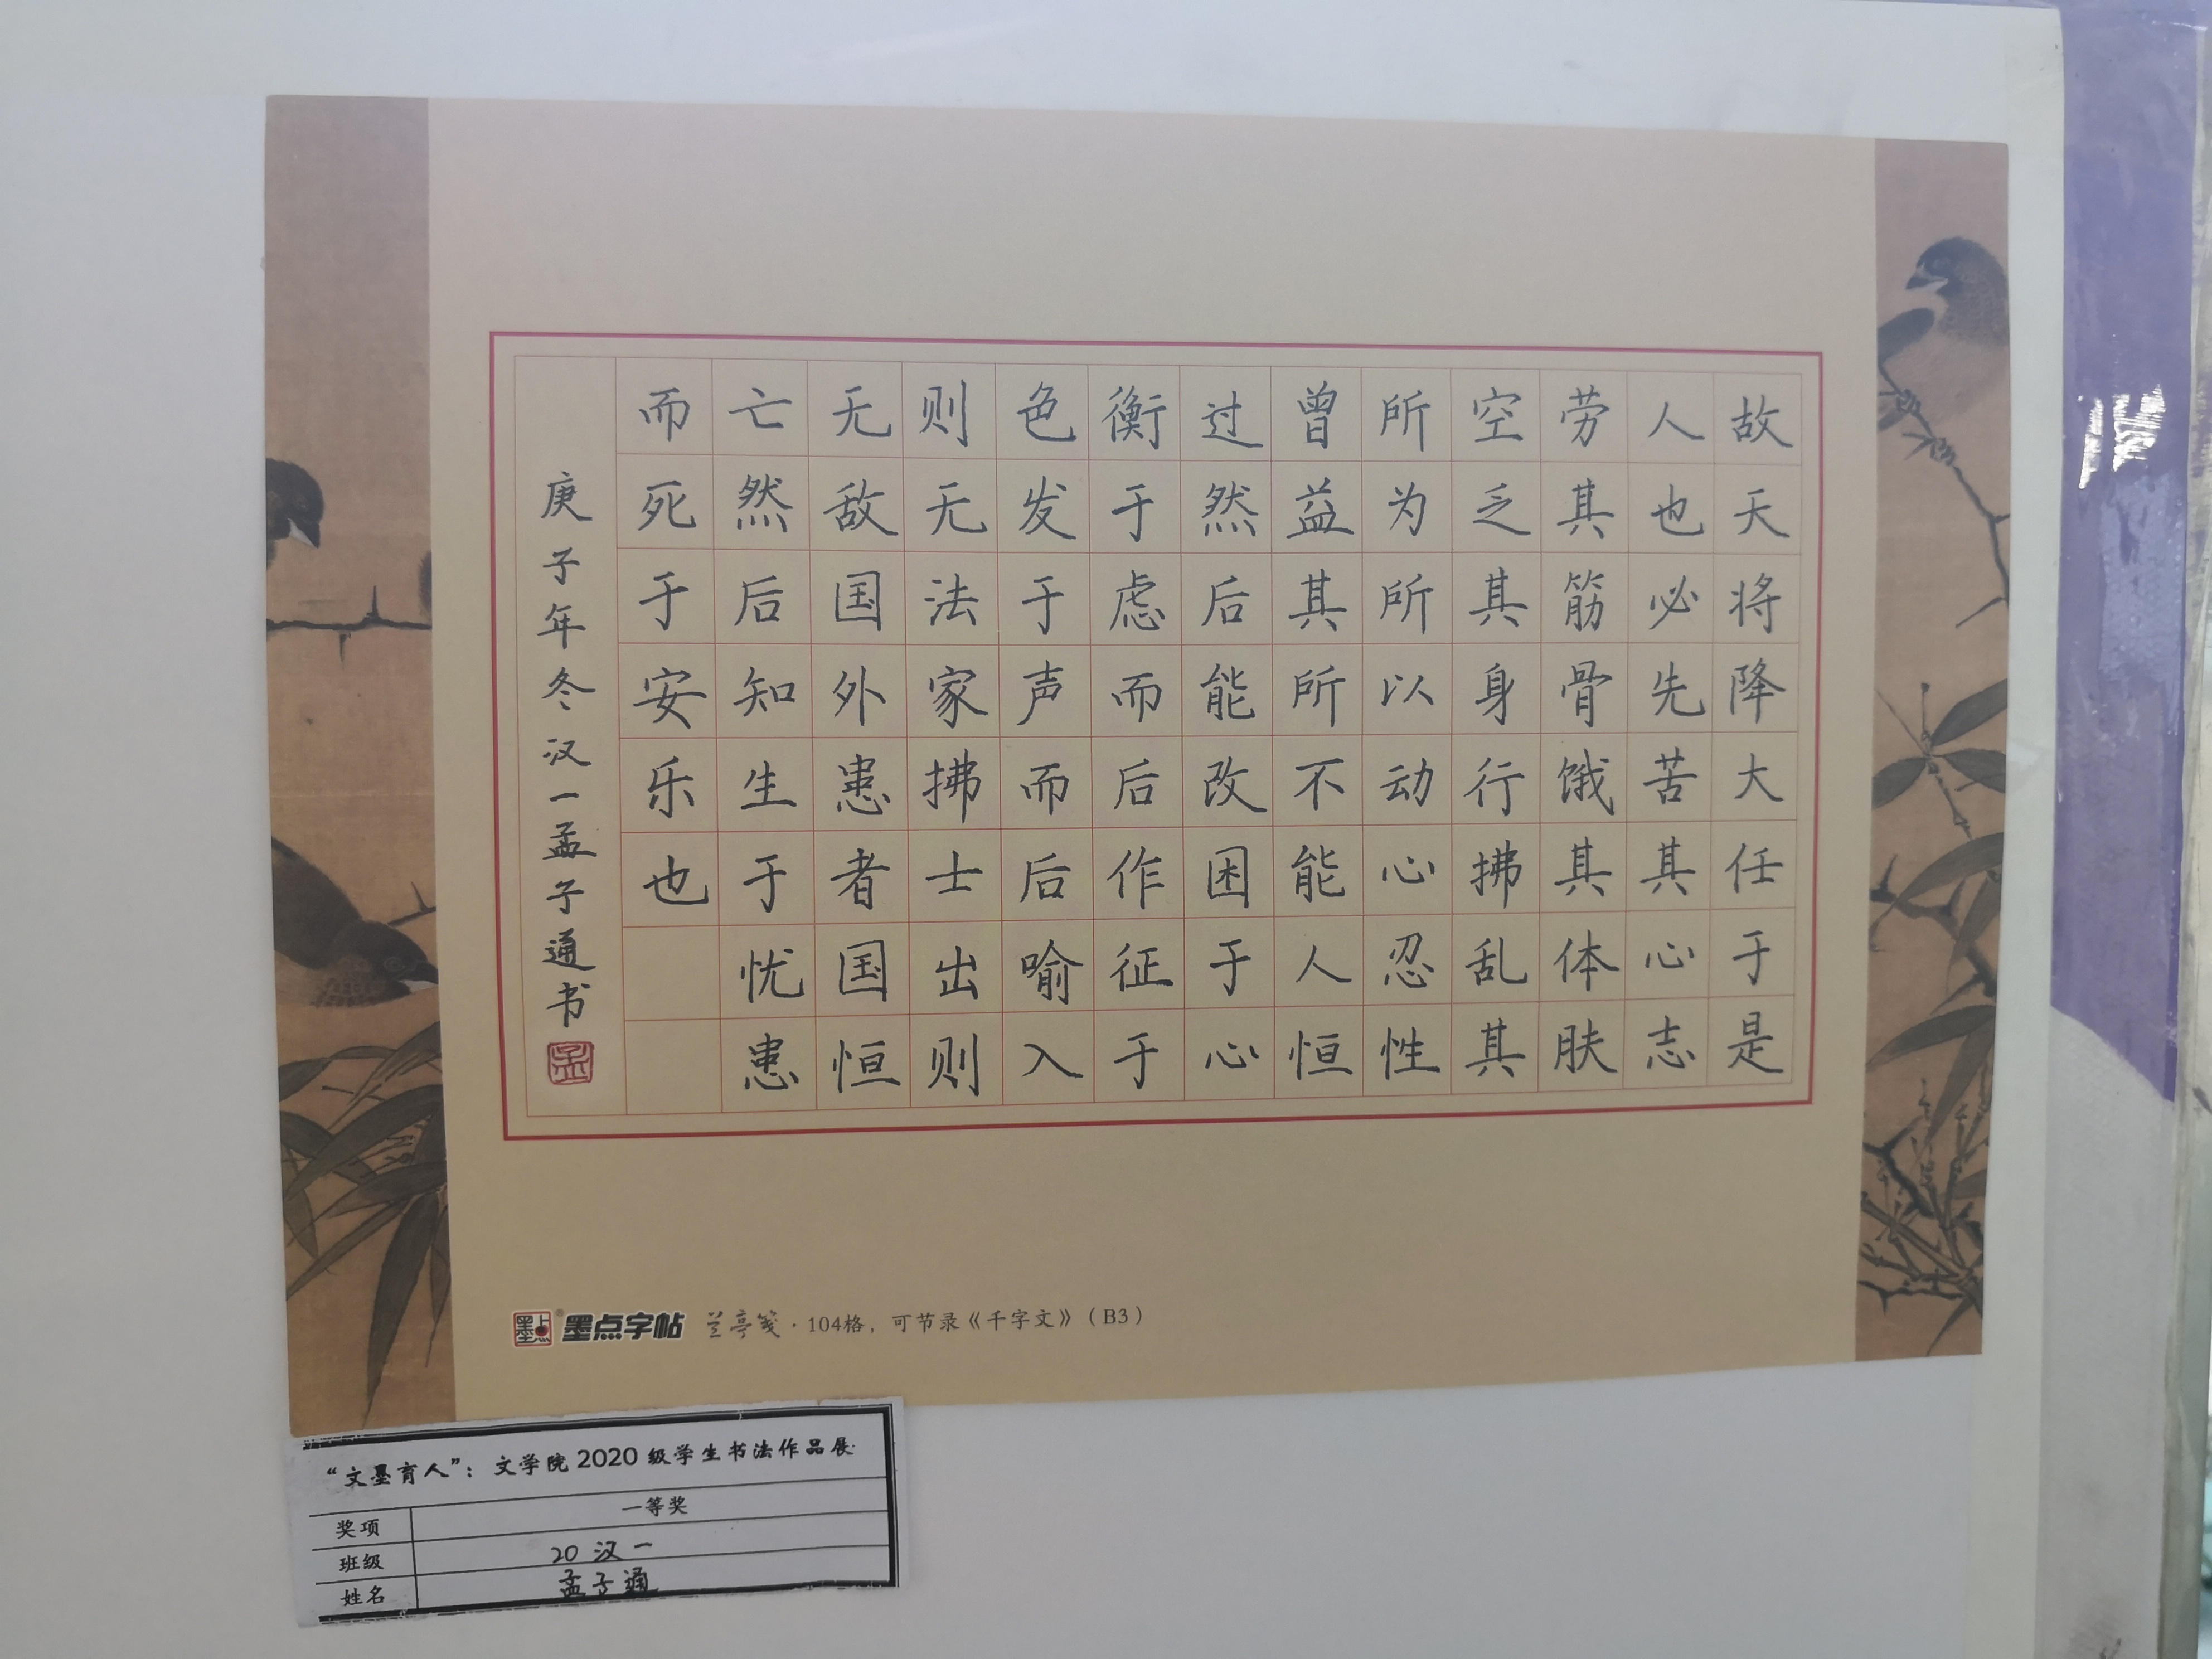 故天将降大任于是
人也必先苦其心志
劳其筋骨饿其体肤
空乏其身行拂乱其
所为所以动心忍性
曾益其所不能人恒
过然后能改困于心
衡于虑而后作征于
色发于声而后喻入
则无法家拂士出则
无敌国外患者国恒
亡然后知生于忧患
而死于安乐也
庚子年冬汉一孟子通书
孟
墨点
墨点字帖 兰亭笺·104格，可节录《千字文》（B3）
“文墨育人”：文学院2020级学生书法作品展
奖项 一等奖
班级 20 汉一
姓名 孟子通